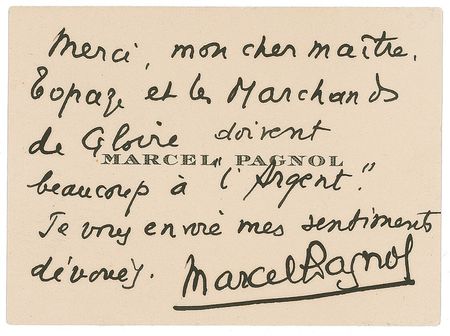 Merci, mon cher maître.
Topaze et les Marchands
de Gloire doivent
MARCEL PAGNOL
beaucoup à "l'Argent".
Je vous envoie mes sentiments
dévoués.
Marcel Pagnol